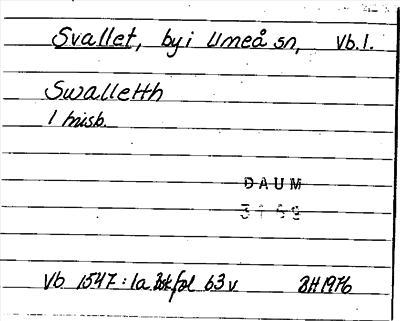 Svallet, by i Umeå sn, Vb.l.
Swalletth
1 misk.
DAUM
3159
Vb 1547:1a fol 63v BH 1976